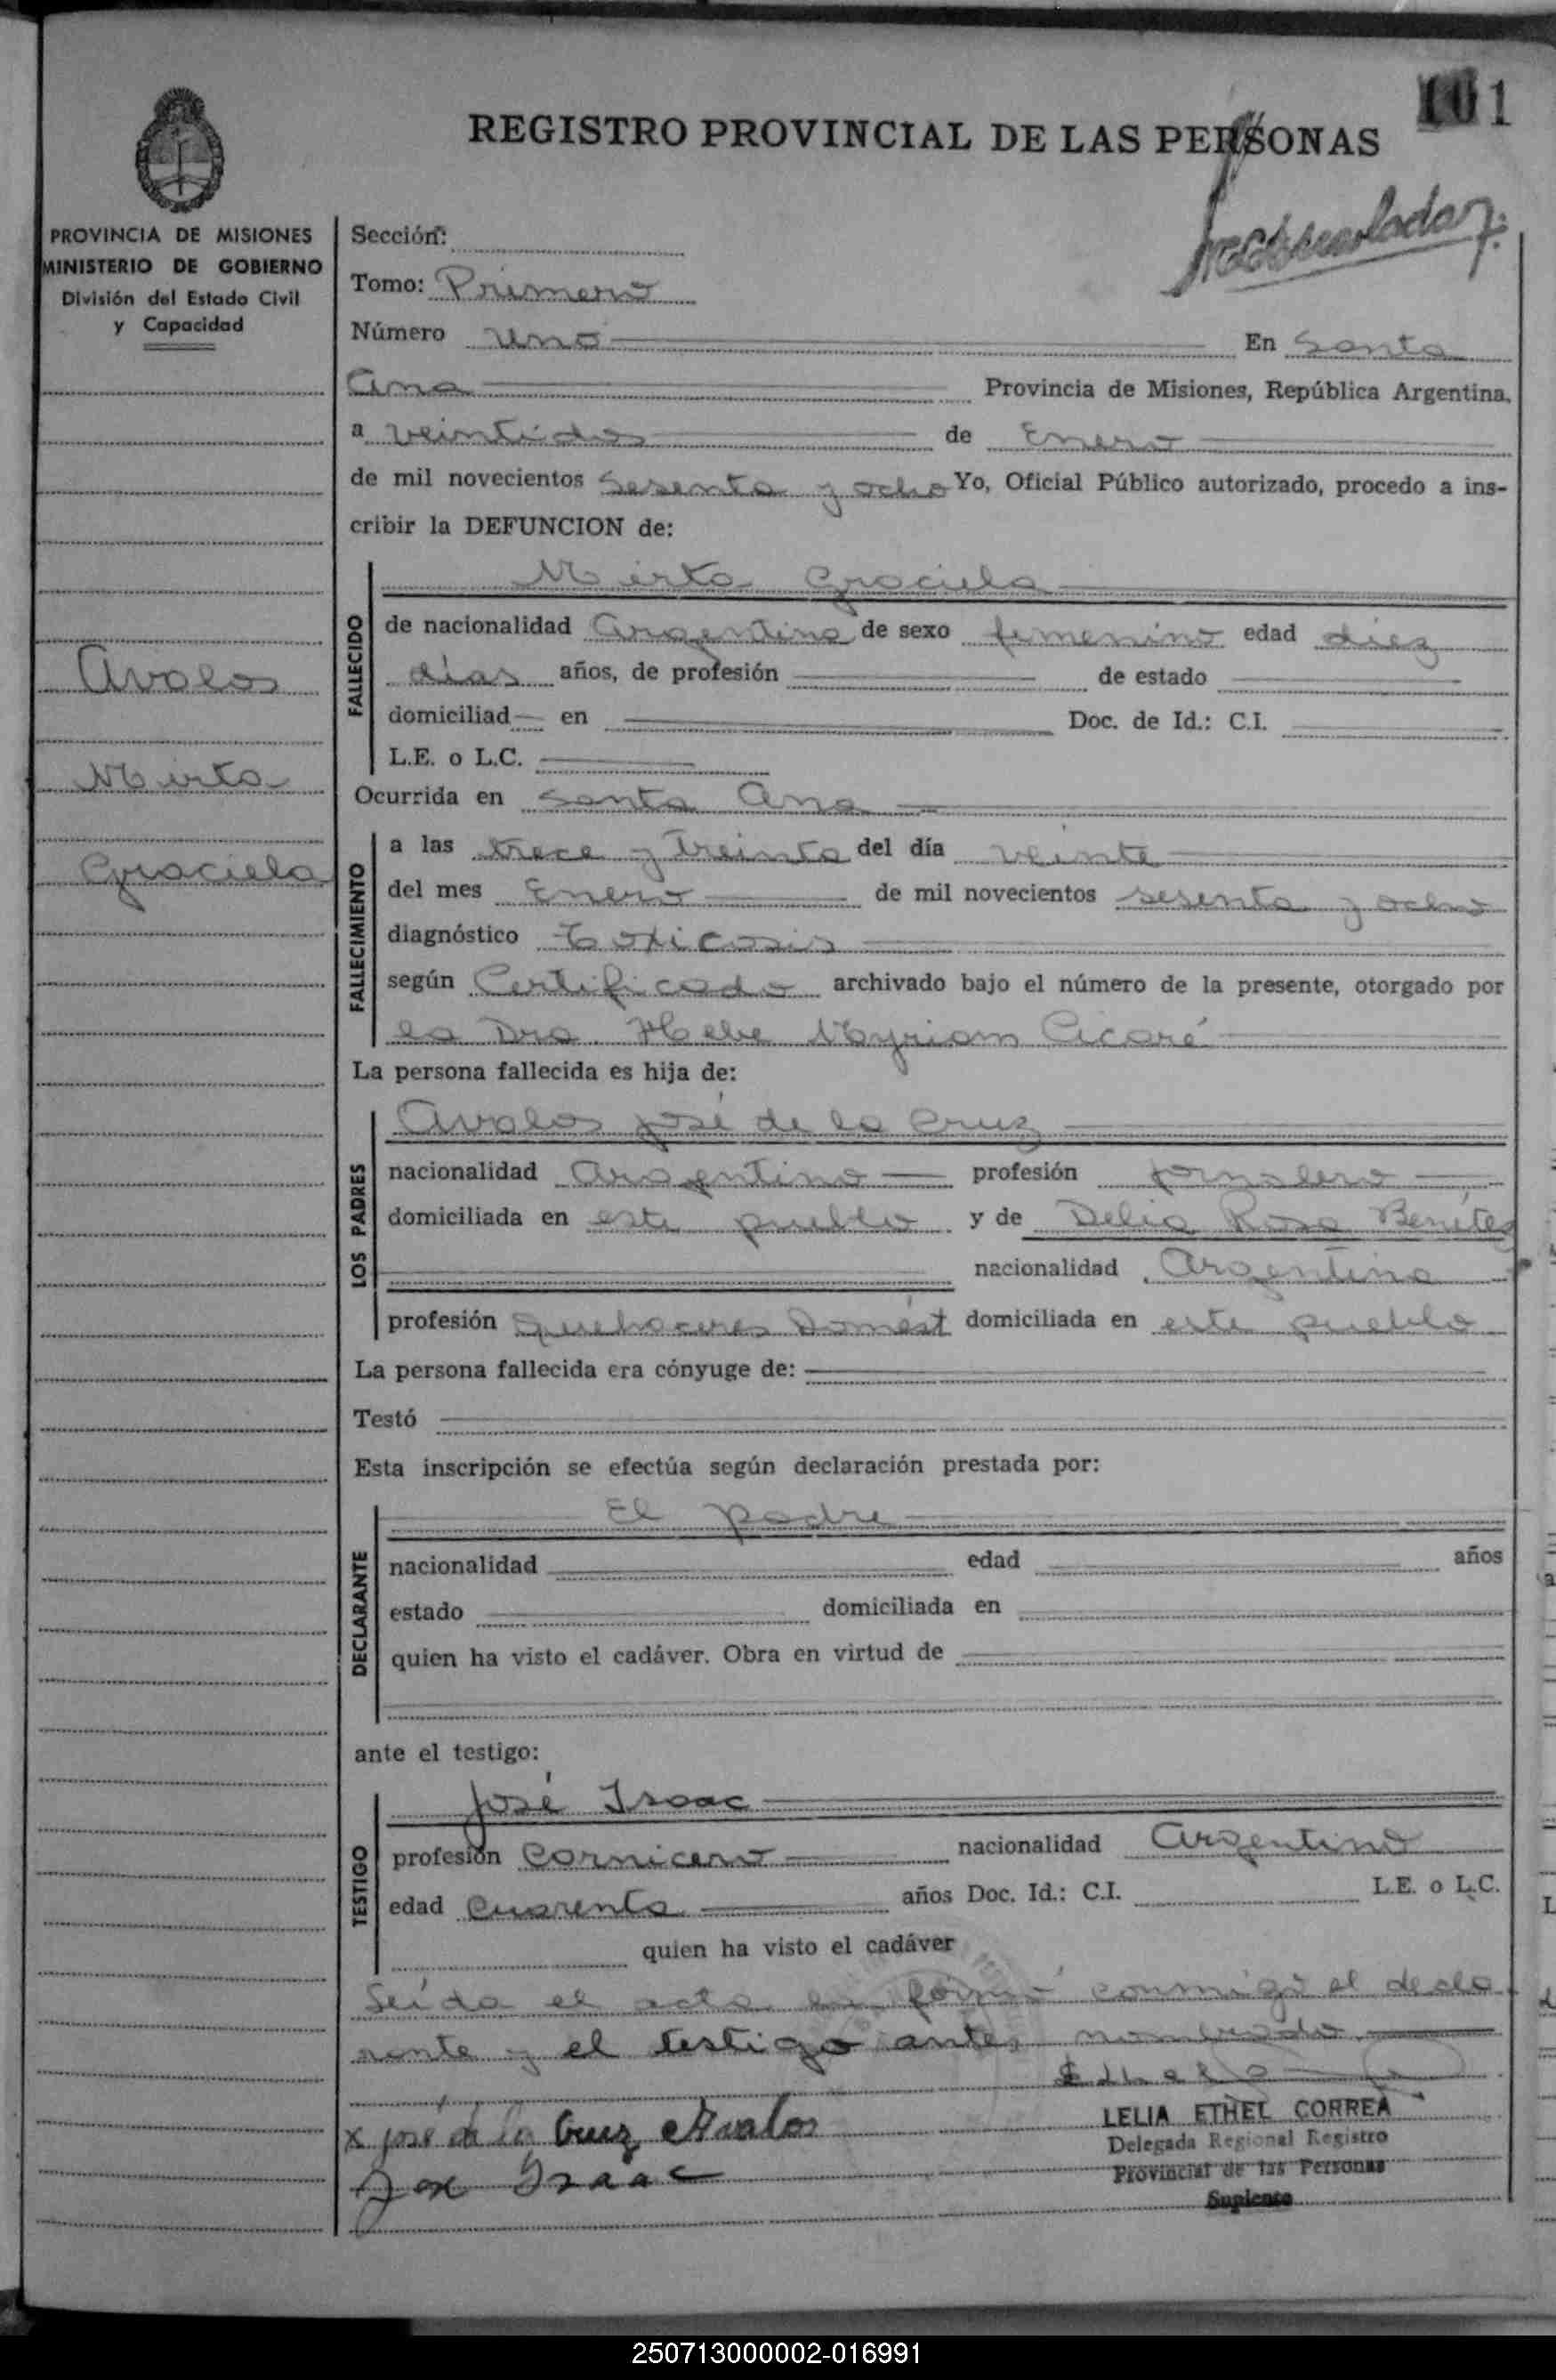 101
REGISTRO PROVINCIAL DE LAS PERSONAS
PROVINCIA DE MISIONES
MINISTERIO DE GOBIERNO
División del Estado Civil
y Capacidad
Avalos
Mirta
Graciela
Sección:
Tomo: Primero
Número uno En Santa
Ana Provincia de Misiones, República Argentina,
a veintidos de Enero
de mil novecientos sesenta y ocho Yo, Oficial Público autorizado, procedo a ins-
cribir la DEFUNCION de:
FALLECIDO
Mirta Graciela
de nacionalidad argentina de sexo femenino edad diez
días años, de profesión de estado
domiciliad en Doc. de Id.: C.I.
L.E. o L.C.
Ocurrida en Santa Ana
FALLECIMIENTO
a las trece y treinta del día veinte
del mes Enero de mil novecientos sesenta y ocho
diagnóstico Toxicosis
según Certificado archivado bajo el número de la presente, otorgado por
la Dra. Hebe Myriam Cicaré
La persona fallecida es hija de:
LOS PADRES
Avalos José de la Cruz
nacionalidad Argentino profesión jornalero
domiciliada en este pueblo y de Delia Rosa Benítez
nacionalidad Argentina
profesión Quehaceres Domést domiciliada en este pueblo
La persona fallecida era cónyuge de:
Testó
Esta inscripción se efectúa según declaración prestada por:
DECLARANTE
El padre
nacionalidad edad años
estado domiciliada en
quien ha visto el cadáver. Obra en virtud de
ante el testigo:
TESTIGO
José Isaac
profesión Carnicero nacionalidad Argentino
edad Cuarenta años Doc. Id.: C.I. L.E. o L.C.
quien ha visto el cadáver
Leída el acta la firmó conmigo el decla
rante y el testigo antes nombrado
x José de la Cruz Avalos
Jose Isaac
LELIA ETHEL CORREA
Delegada Regional Registro
Provincial de las Personas
Suplente
250713000002-016991